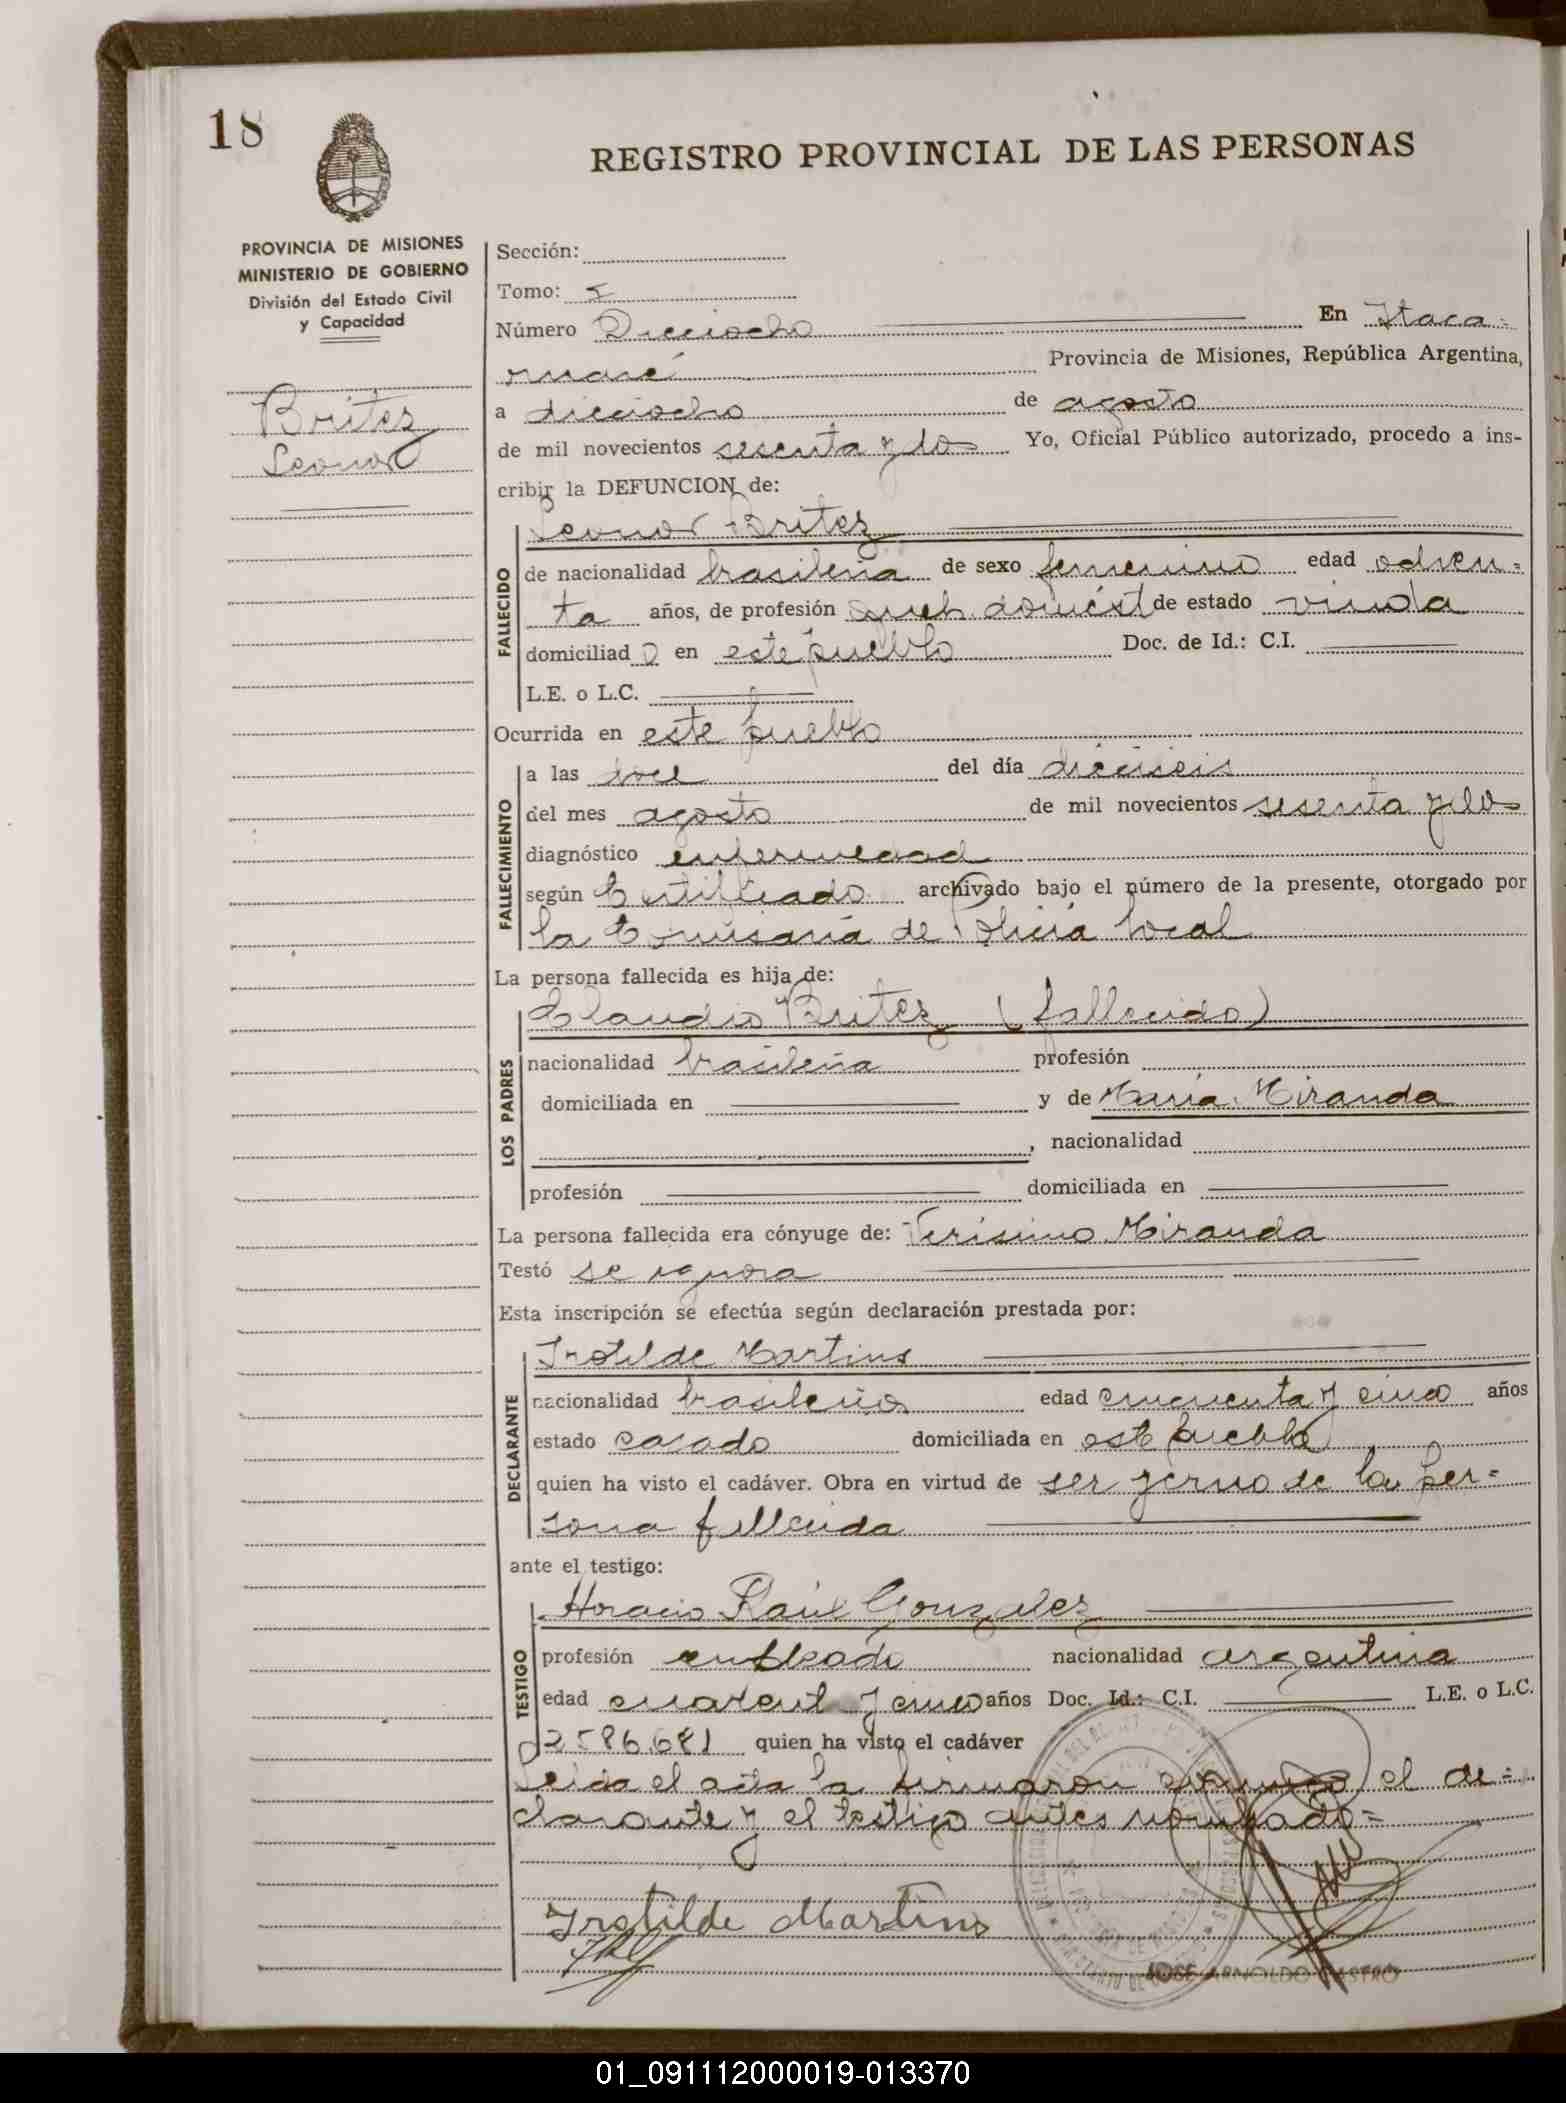 18
REGISTRO PROVINCIAL DE LAS PERSONAS
PROVINCIA DE MISIONES
MINISTERIO DE GOBIERNO
División del Estado Civil
y Capacidad
Britez
Leonor
Sección:
Tomo: I
Número Dieciocho En Itaca=
ruaré Provincia de Misiones, República Argentina,
a dieciocho de agosto
de mil novecientos sesenta y dos Yo, Oficial Público autorizado, procedo a ins-
cribir la DEFUNCION de:
Leonor Britez
FALLECIDO
de nacionalidad brasileña de sexo femenino edad ochen=
ta años, de profesión queh. domést de estado viuda
domiciliad a en este pueblo Doc. de Id.: C.I.
L.E. o L.C.
Ocurrida en este pueblo
FALLECIMIENTO
a las doce del día dieciseis
del mes agosto de mil novecientos sesenta y dos
diagnóstico enfermedad
según Certificado archivado bajo el número de la presente, otorgado por
la Comisaría de Policía local
La persona fallecida es hija de:
Claudio Britez (fallecido)
LOS PADRES
nacionalidad brasileña profesión
domiciliada en y de María Miranda
, nacionalidad
profesión domiciliada en
La persona fallecida era cónyuge de: Verisimo Miranda
Testó se ignora
Esta inscripción se efectúa según declaración prestada por:
Trotilde Martins
DECLARANTE
nacionalidad brasileña edad cincuenta y cinco años
estado casado domiciliada en este pueblo
quien ha visto el cadáver. Obra en virtud de ser yerno de la per=
sona fallecida
ante el testigo:
Horacio Raúl Gonzalez
TESTIGO
profesión empleado nacionalidad argentina
edad cuarent y cinco años Doc. Id.: C.I. L.E. o L.C.
2586.681 quien ha visto el cadáver
Leida el acta la firmaron el de=
clarante y el testigo antes nombrado=
Trotilde Martins
JOSE ARNOLDO CASTRO
01_091112000019-013370